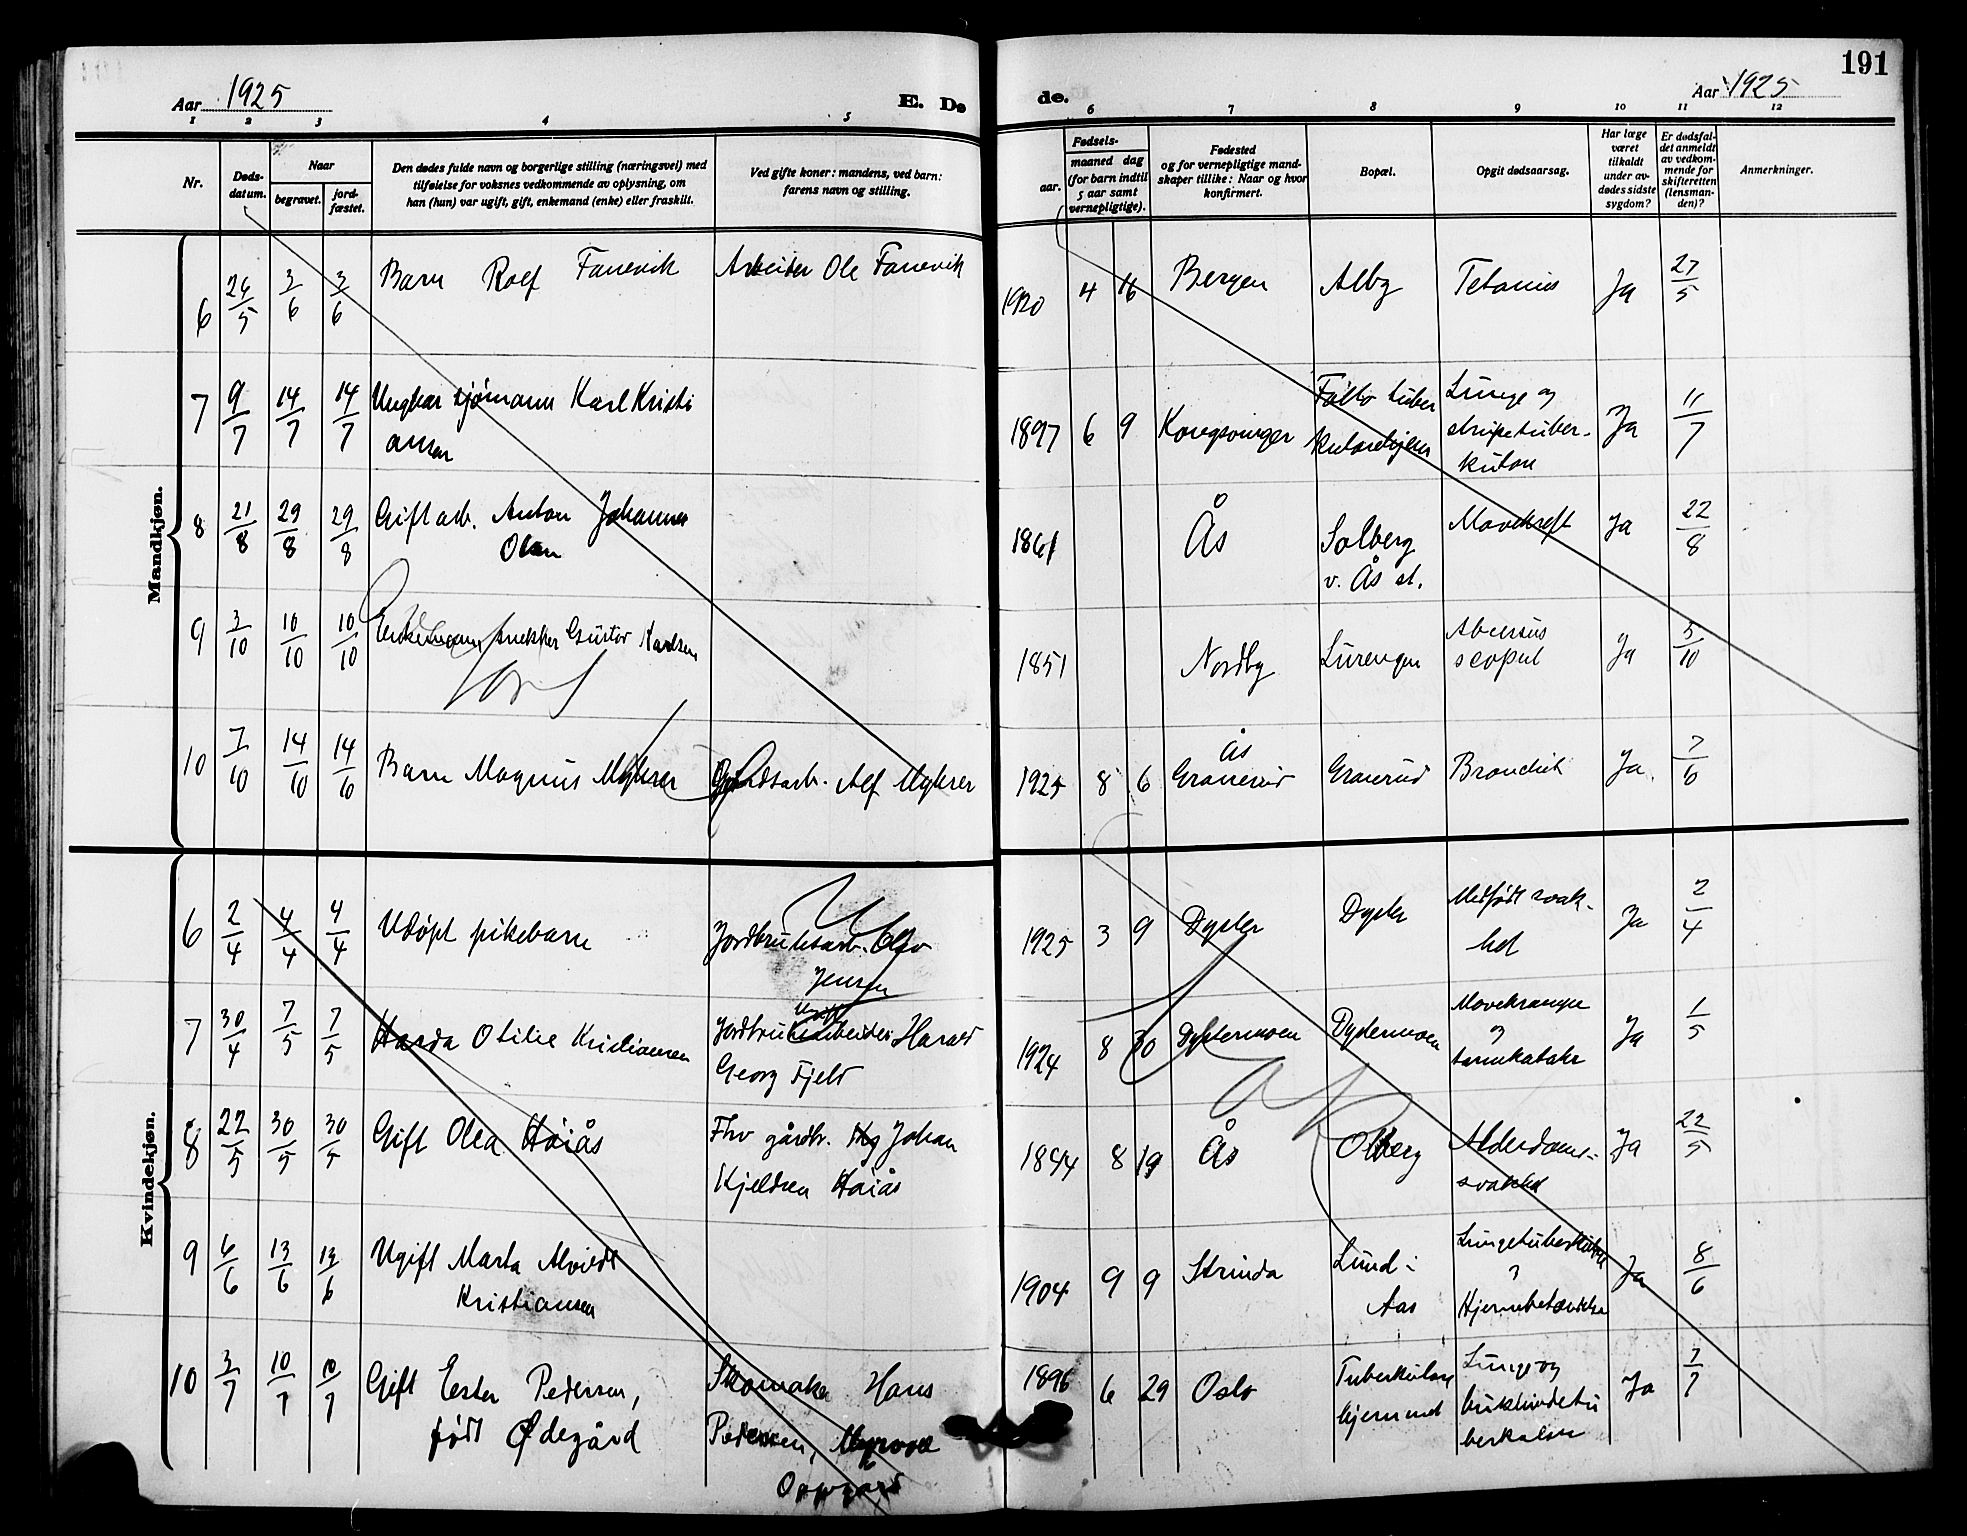 191
Aar 1925
E. Dø
de.
Aar 1925
1 2 3 4 5
6 7 8 9 10 11 12
Nr.
Døds-
datum.
Naar
begravet.
jord-
fæstet.
Den dødes fulde navn og borgerlige stilling (næringsvei) med
tilføielse for voksnes vedkommende av oplysning, om
han (hun) var ugift, gift, enkemand (enke) eller fraskilt.
Ved gifte koner: mandens, ved barn:
farens navn og stilling.
Fødsels-
aar.
maaned dag
(for barn indtil
5 aar samt
vernepligtige).
Fødested
og for vernepligtige mand-
skaper tillike: Naar og hvor
konfirmert.
Bopæl.
Opgit dødsaarsag.
Har læge
været
tilkaldt
under av-
dødes sidste
sygdom?
Er dødsfal-
det anmeldt
av vedkom-
mende for
skifteretten
(lensman-
den)?
Anmerkninger.
Mandkjøn.
6 26/5 3/6 3/6 Barn Rolf Fanevik Arbeider Ole Fanevik 1920 4 16 Bergen Alby Tetanus Ja 27/5
7 9/7 14/7 14/7 Ungkar sjømann Karl Kristi
ansen
1897 6 9 Kongsvinger Follo tuber
kulosehjem
Lunge og
strupetuber-
kulose
Ja 11/7
8 21/8 29/8 29/8 Gift arb. Anton Johannes
Olsen
1861 Ås Solberg
v. Ås st.
Mavekreft Ja 22/8
9 3/10 10/10 10/10 Enkemann snekker Gustav Karlsen 1851 Nordby Lurengen
Ja 5/10
10 7/10 14/10 14/6 Barn Magnus Myhrer Alf Myhrer 1925 8 6 Ås
Granerud Granerud Bronchit Ja. 7/6
Kvindekjøn.
6 2/4 4/4 4/4 Udøpt pikebarn Jordbruksarb. Olav
Jensen
1925 3 9 Dyster Dyster Medfødt svak-
het
Ja 2/4
7 30/4 7/5 7/5 Harda Otilie Kristiansen Jordbruksarbeider Harald
Georg Fjeld
1924 8 30 Dystermoen Dystermoen Mavekrampe
og
tarmkatahr
Ja 1/5
8 22/5 30/5 30/5 Gift Olea Haiås Fhv gårdbr. Johan
Kjeldsen Haiås
1844 8 19 Ås Olberg Alderdoms-
svakhet
Ja 22/5
9 6/6 13/6 13/6 Ugift Marta Alvilde
Kristiansen
1904 9 9 Strinda Lund i
Aas
Lungetuberkulose
og
Hjernebetændelse
Ja 8/6
10 3/7 10/7 10/7 Gift Ester Pedersen,
født Ødegård
Skomaker Hans
Pedersen, Myrvoll
Oppegård
1896 6 29 Oslo Tuberkulose
hjemmet
Lunge og
bukhindetu
berkulose
Ja 7/7